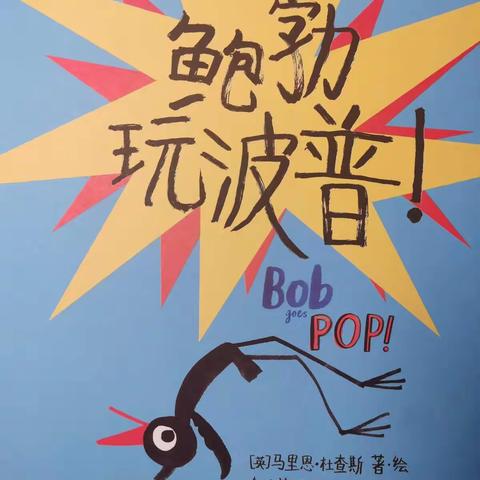 鲍勃
玩波普!
Bob
goes
POP!
[英]马里恩·杜查斯 著·绘